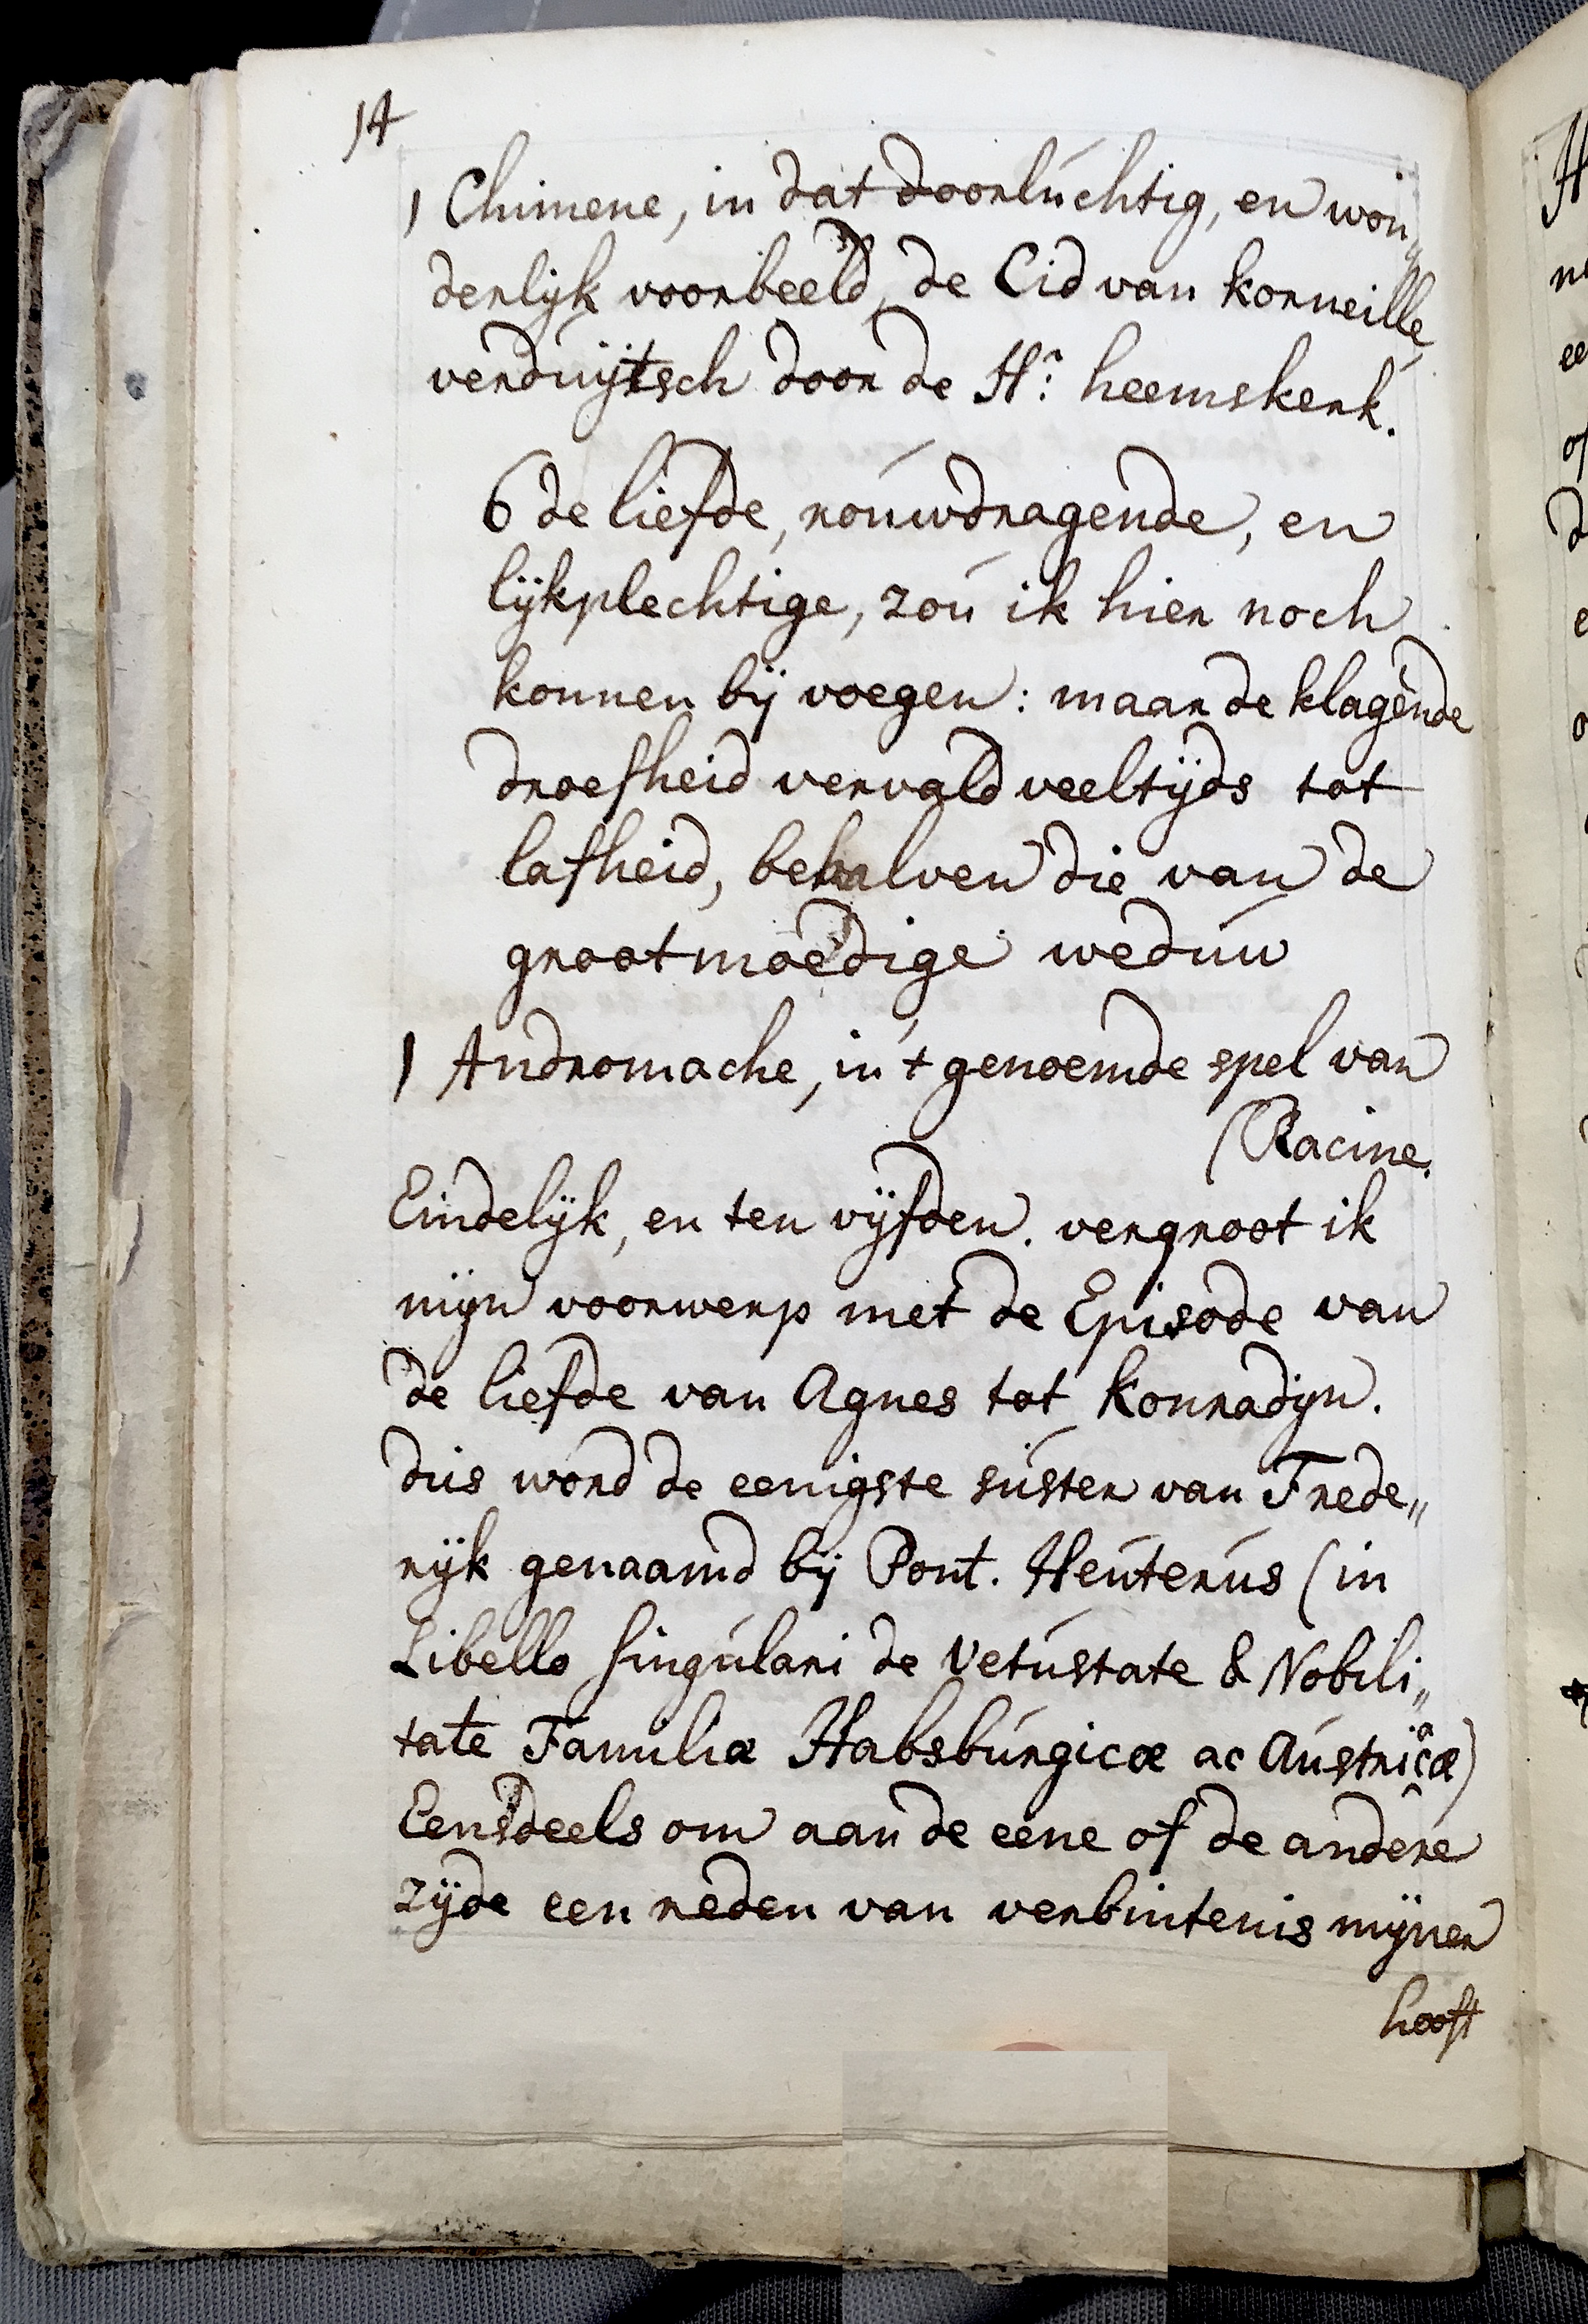 14
1 Chimene, in dat doorluchtig, en won„
derlijk voorbeeld, de Cid van Korneille,
verduijtsch door de Hr: heemskerk.
6 de liefde, rouwdragende, en
lijkplechtige, zou ik hier noch
konnen bij voegen: maar de klagende
droefheid vervald veeltijds tot
lafheid, behalven die van de
grootmoedige weduw
1 Andromache, in 't genoemde spel van
(Racine.
Eindelijk, en ten vijfden. vergroot ik
mijn voorwerp met de Episode van
de liefde van Agnes tot Konradijn.
dus word de eenigste suster van Frede„
rijk genaamd bij Pont. Heuterus (in
Libello singulari de Vetustate & Nobili„
tate Familiæ Habsburgicæ ac Austriacæ)
Eensdeels om aan de eene of de andere
zijde een reden van verbintenis mijner
hooft